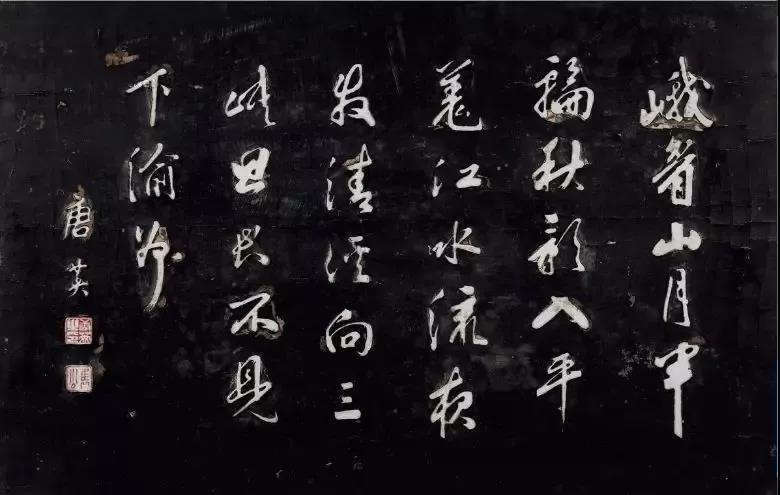 峨眉山月半
輪秋影入平
羌江水流夜
發清溪向三
峽思君不見
下渝州
唐英